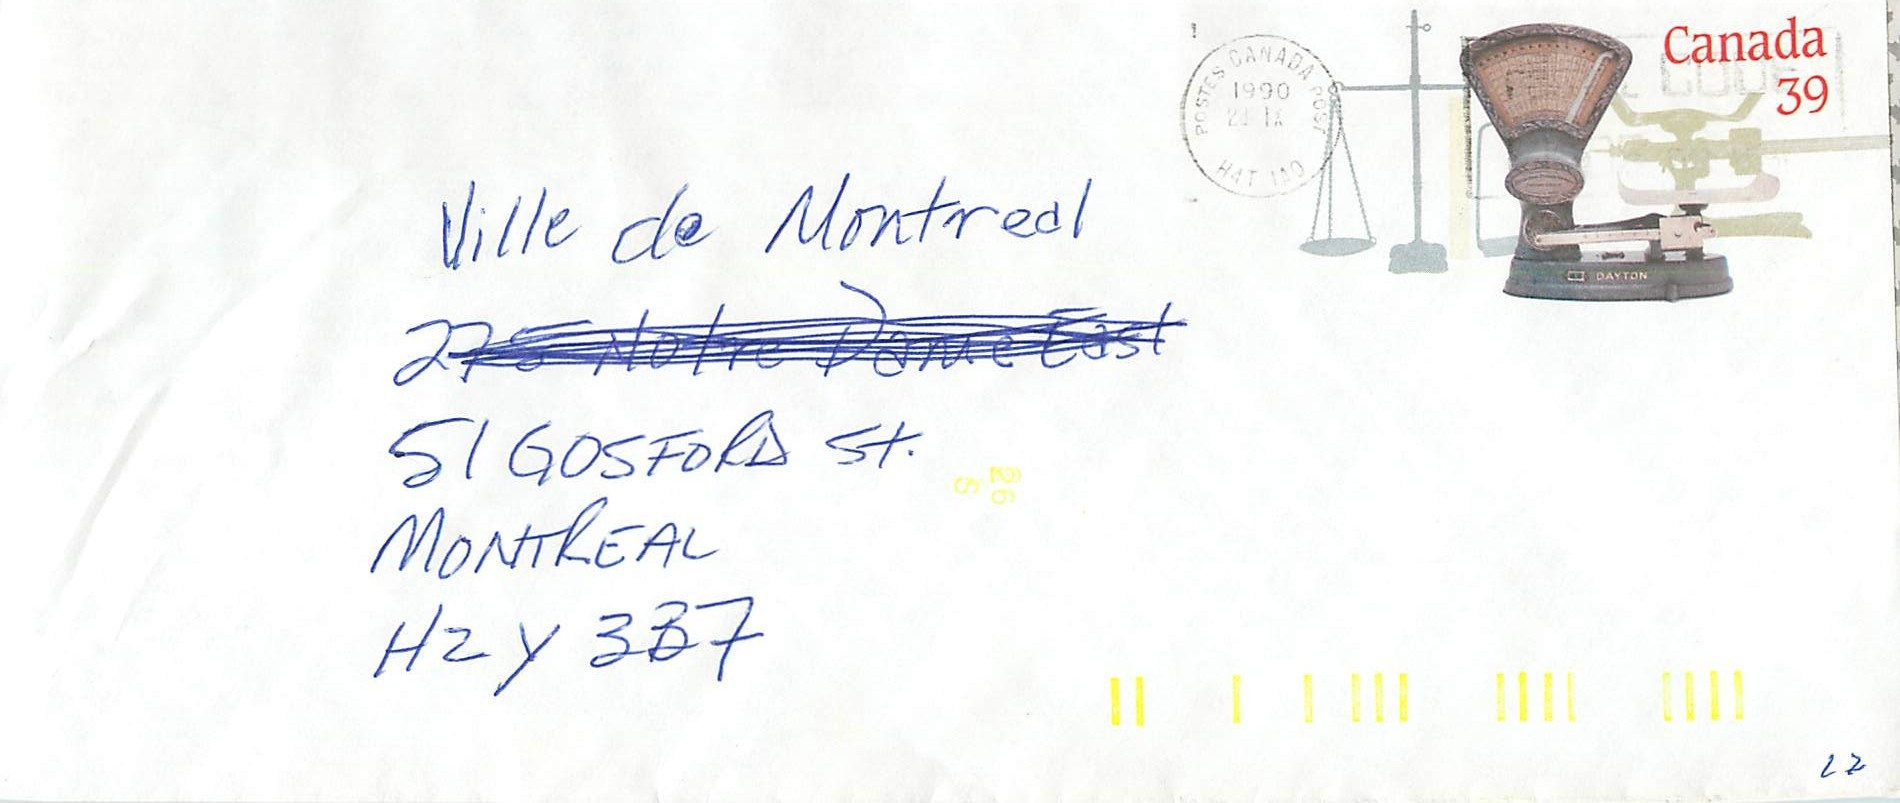 Canada
39
POSTES CANADA POST
1990
H4T 1A0
DAYTON
Ville de Montreal
275 Notre Dame East
51 GOSFORD St.
MONTREAL
H2Y 3B7
26
S